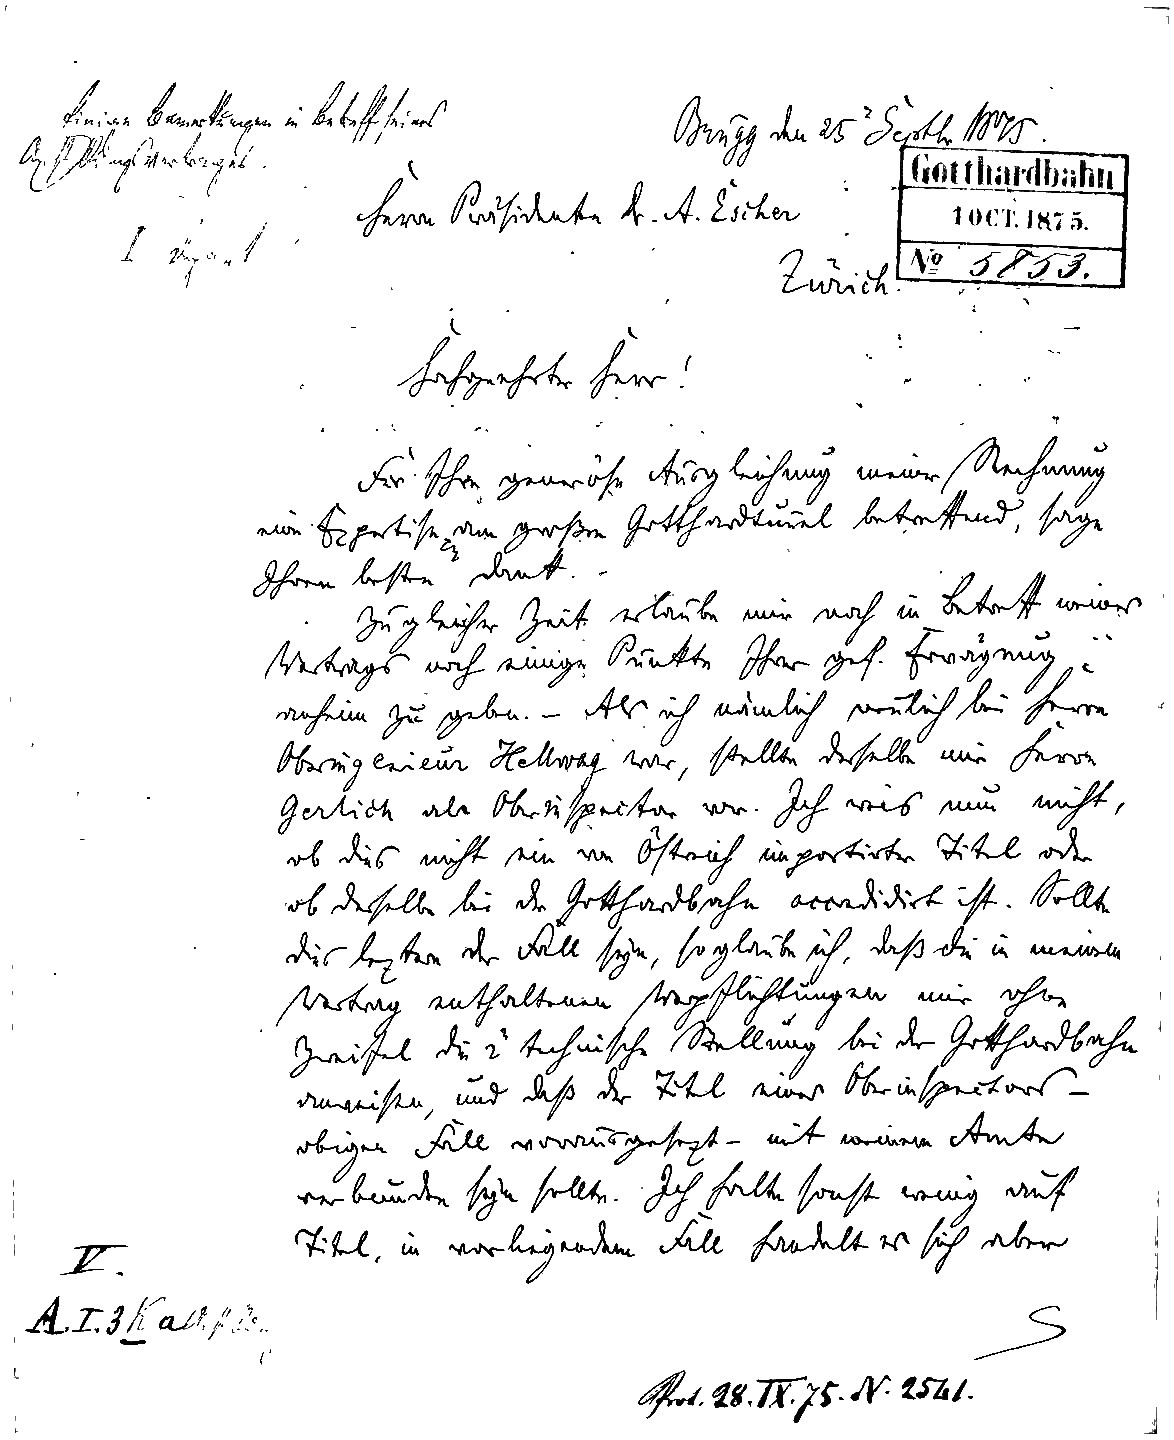 Einige Bemerkungen in Betreff seines
Anstellungsvertrages.
Brugg den 25 Septbr 1875.
Gotthardbahn
1 OCT. 1875.
No 5853.
Herrn Präsidenten Dr. A. Escher
Zürich.
I
Hochgeehrter Herr!
Für Ihre generöse Ausgleichung meiner Rechnung
eine Expertise am großen Gotthardtunnel betreffend, sage
Ihnen besten Dank.
Zu gleicher Zeit erlaube mir noch in Betreff meines
Vertrags noch einige Punkte Ihrer gef. Erwägung
anheim zu geben. – Als ich nämlich neulich bei Herrn
Oberingenieur Hellwag war, stellte derselbe mir Herrn
Gerlich als Oberinspector vor. Ich weis nun nicht,
ob dies nicht ein von Östreich importirter Titel oder
ob derselbe bei der Gotthardbahn accredidirt ist. Sollte
dies leztere der Fall seyn, so glaube ich, daß die in meinem
Vertrag enthaltenen Verpflichtungen mir ohne
Zweifel die 2te technische Stellung bei der Gotthardbahn
anweisen, und daß der Titel eines Oberinspectors –
obigen Fall vorausgesezt – mit meinem Amte
verbunden seyn sollte. Ich halte sonst wenig auf
Titel, in vorliegendem Fall handelt es sich aber
V.
A.I.3
Prot. 28.IX.75. N. 2541.